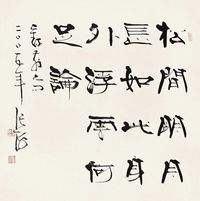 松間明月
長如此身
外浮雲何
足論
二〇〇五年張海